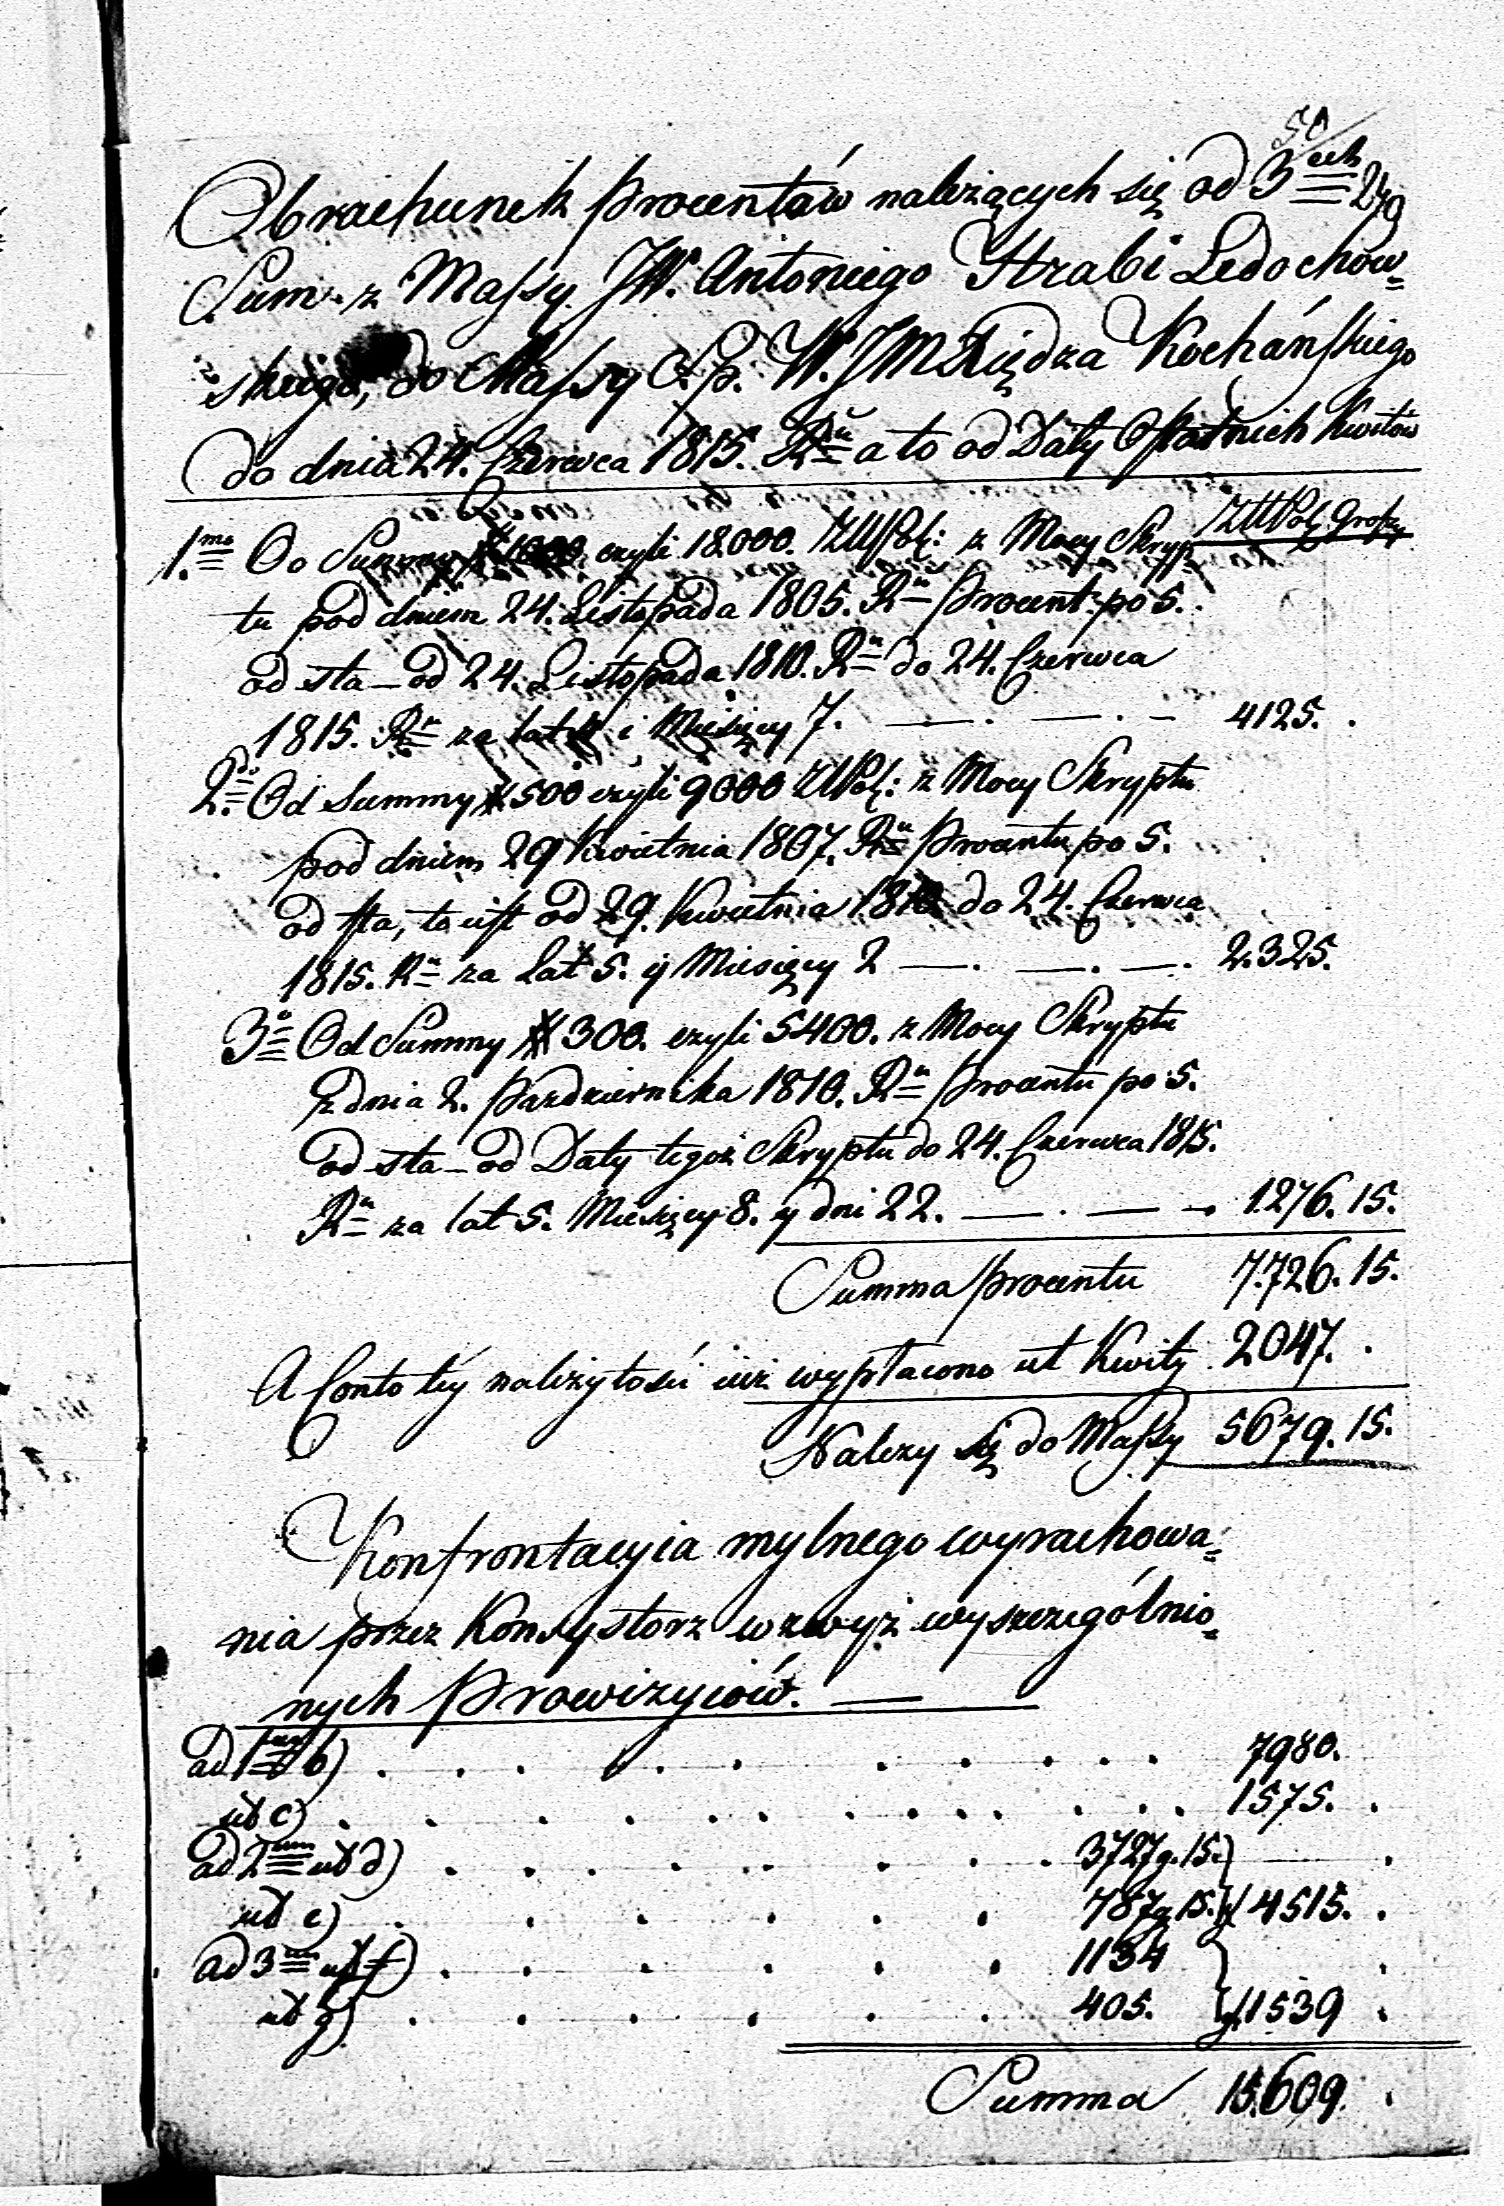 50
Obrachunek Procentów należących się od 3ech
Sum z Massy JW. Antoniego Hrabi Ledochow=
skiego, do Massy Ś. p. W. JM Xiędza Kochańskiego
do dnia 24. Czerwca 1815. Ru a to od Daty Ostatnich Kwitów
ZłłPol. Groszy
1.mo Od Summy # 1000 czyli 18.000. ZłłPol: z Mocy Skryp
tu pod dniem 24. Listopada 1805. Ru Procent po 5.
od sta – od 24. Listopada 1810. Ru do 24. Czerwca
1815. Ru za lat 4 i Miesięcy 7. — . — . – 4125. .
2.do Od Summy # 500 czyli 9000 ZłPol: z Mocy Skryptu
pod dniem 29 Kwietnia 1807. Ru Procentu po 5.
od sta, to iest od 29. Kwietnia 1810 do 24. Czerwca
1815. Ru za Lat 5. y Miesięcy 2 — . — . — . 2.325.
3o Od Summy # 300. czyli 5400. z Mocy Skryptu
z dnia 2. Pazdziernika 1810. Ru Procentu po 5.
od sta – od Daty tegoż Skryptu do 24. Czerwca 1815.
Ru za lat 5. Miesięcy 8. y dni 22. — . — – . 1.276. 15.
Summa procentu 7.726. 15.
A Conto tey należytości iuż wypłacono ut Kwity 2047. .
Należy się do Massy 5679. 15.
Konfrontacyia mylnego wyrachowa=
nia przez Konsystorz wzwyż wyszczególnio=
nych Prowizyiów. —
ad 1um b) . . . . . . . . . . 7980.
ut c) . . . . . . . . . . . . 1575. .
ad 2um ut d) . . . . . . . 3727 g. 15.} .
ut e) . . . . . . 787 g 15.} 4515. .
ad 3um ut f) . . . . . . 1134 } .
ut g) . . . . . . 405. } 1539 .
Summa 15.609. .